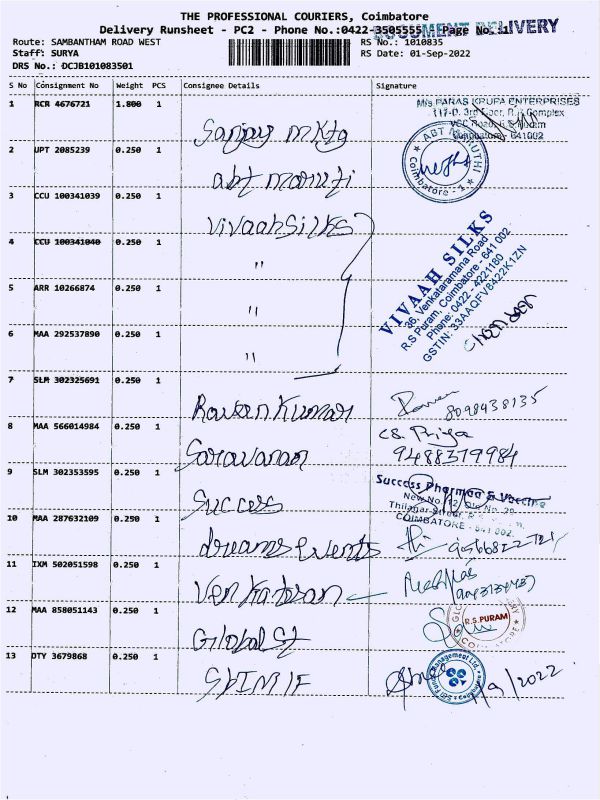 THE PROFESSIONAL COURIERS, Coimbatore
Delivery Runsheet - PC2 - Phone No.:0422-3505555 Page No.:1
DOCUMENT DELIVERY
Route: SAMBANTHAM ROAD WEST
RS No.: 1010835
Staff: SURYA
RS Date: 01-Sep-2022
DRS No.: DCJB101083501
S No Consignment No Weight PCS Consignee Details Signature
1 RCR 4676721 1.800 1
M/s PARAS KRUPA ENTERPRISES
Coimbatore - 641002
2 UPT 2085239 0.250 1
abt maruti
ABT MARUTHI
Coimbatore - 1
3 CCU 100341039 0.250 1
Vivaah Silks
4 CCU 100341040 0.250 1
"
VIVAAH SILKS
36, Venkataramana Road
R.S Puram, Coimbatore - 641 002
Phone: 0422 - 4221180
GSTIN: 33AAQFV8422K1ZN
5 ARR 10266874 0.250 1
"
6 MAA 292537890 0.250 1
"
7 SLM 302325691 0.250 1
Raveen Kumar
8098438135
8 MAA 566014984 0.250 1
Saravanan
CS. Priya
9488379984
9 SLM 302353595 0.250 1
Success
Success Pharma & Vaccine
COIMBATORE - 641 002.
10 MAA 287632109 0.250 1
dreams events
11 IXM 502051598 0.250 1
Venkatesan
12 MAA 858051143 0.250 1
Global St
R.S.PURAM
13 DTY 3679868 0.250 1
1/9/2022